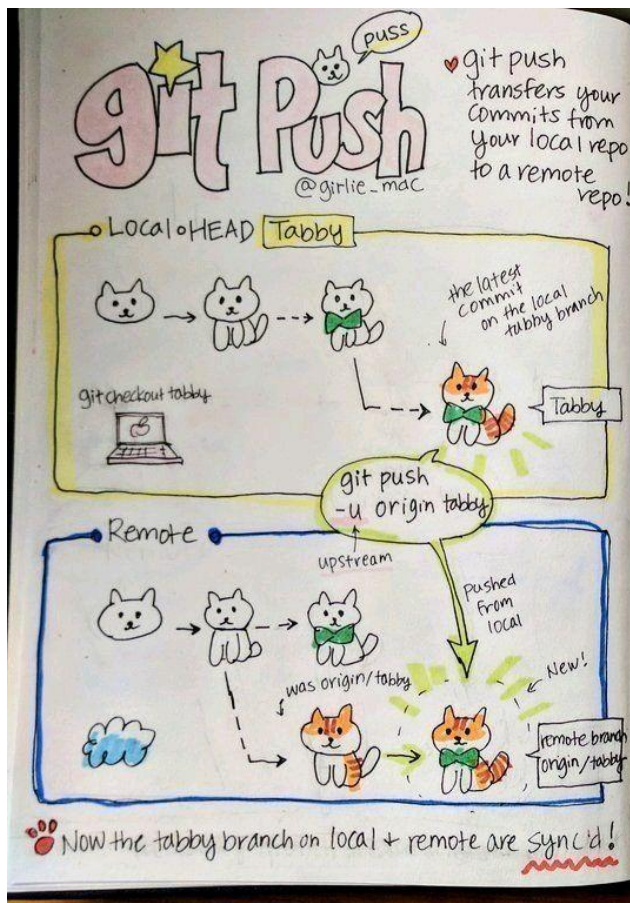 puss
git Push
@girlie_mac
git push
transfers your
commits from
your local repo
to a remote
repo!
Local HEAD Tabby
the latest
commit
on the local
tabby branch
git checkout tabby
Tabby
git push
-u origin tabby
upstream
Remote
pushed
from
local
was origin/tabby
New!
remote branch
origin/tabby
Now the tabby branch on local + remote are sync'd!